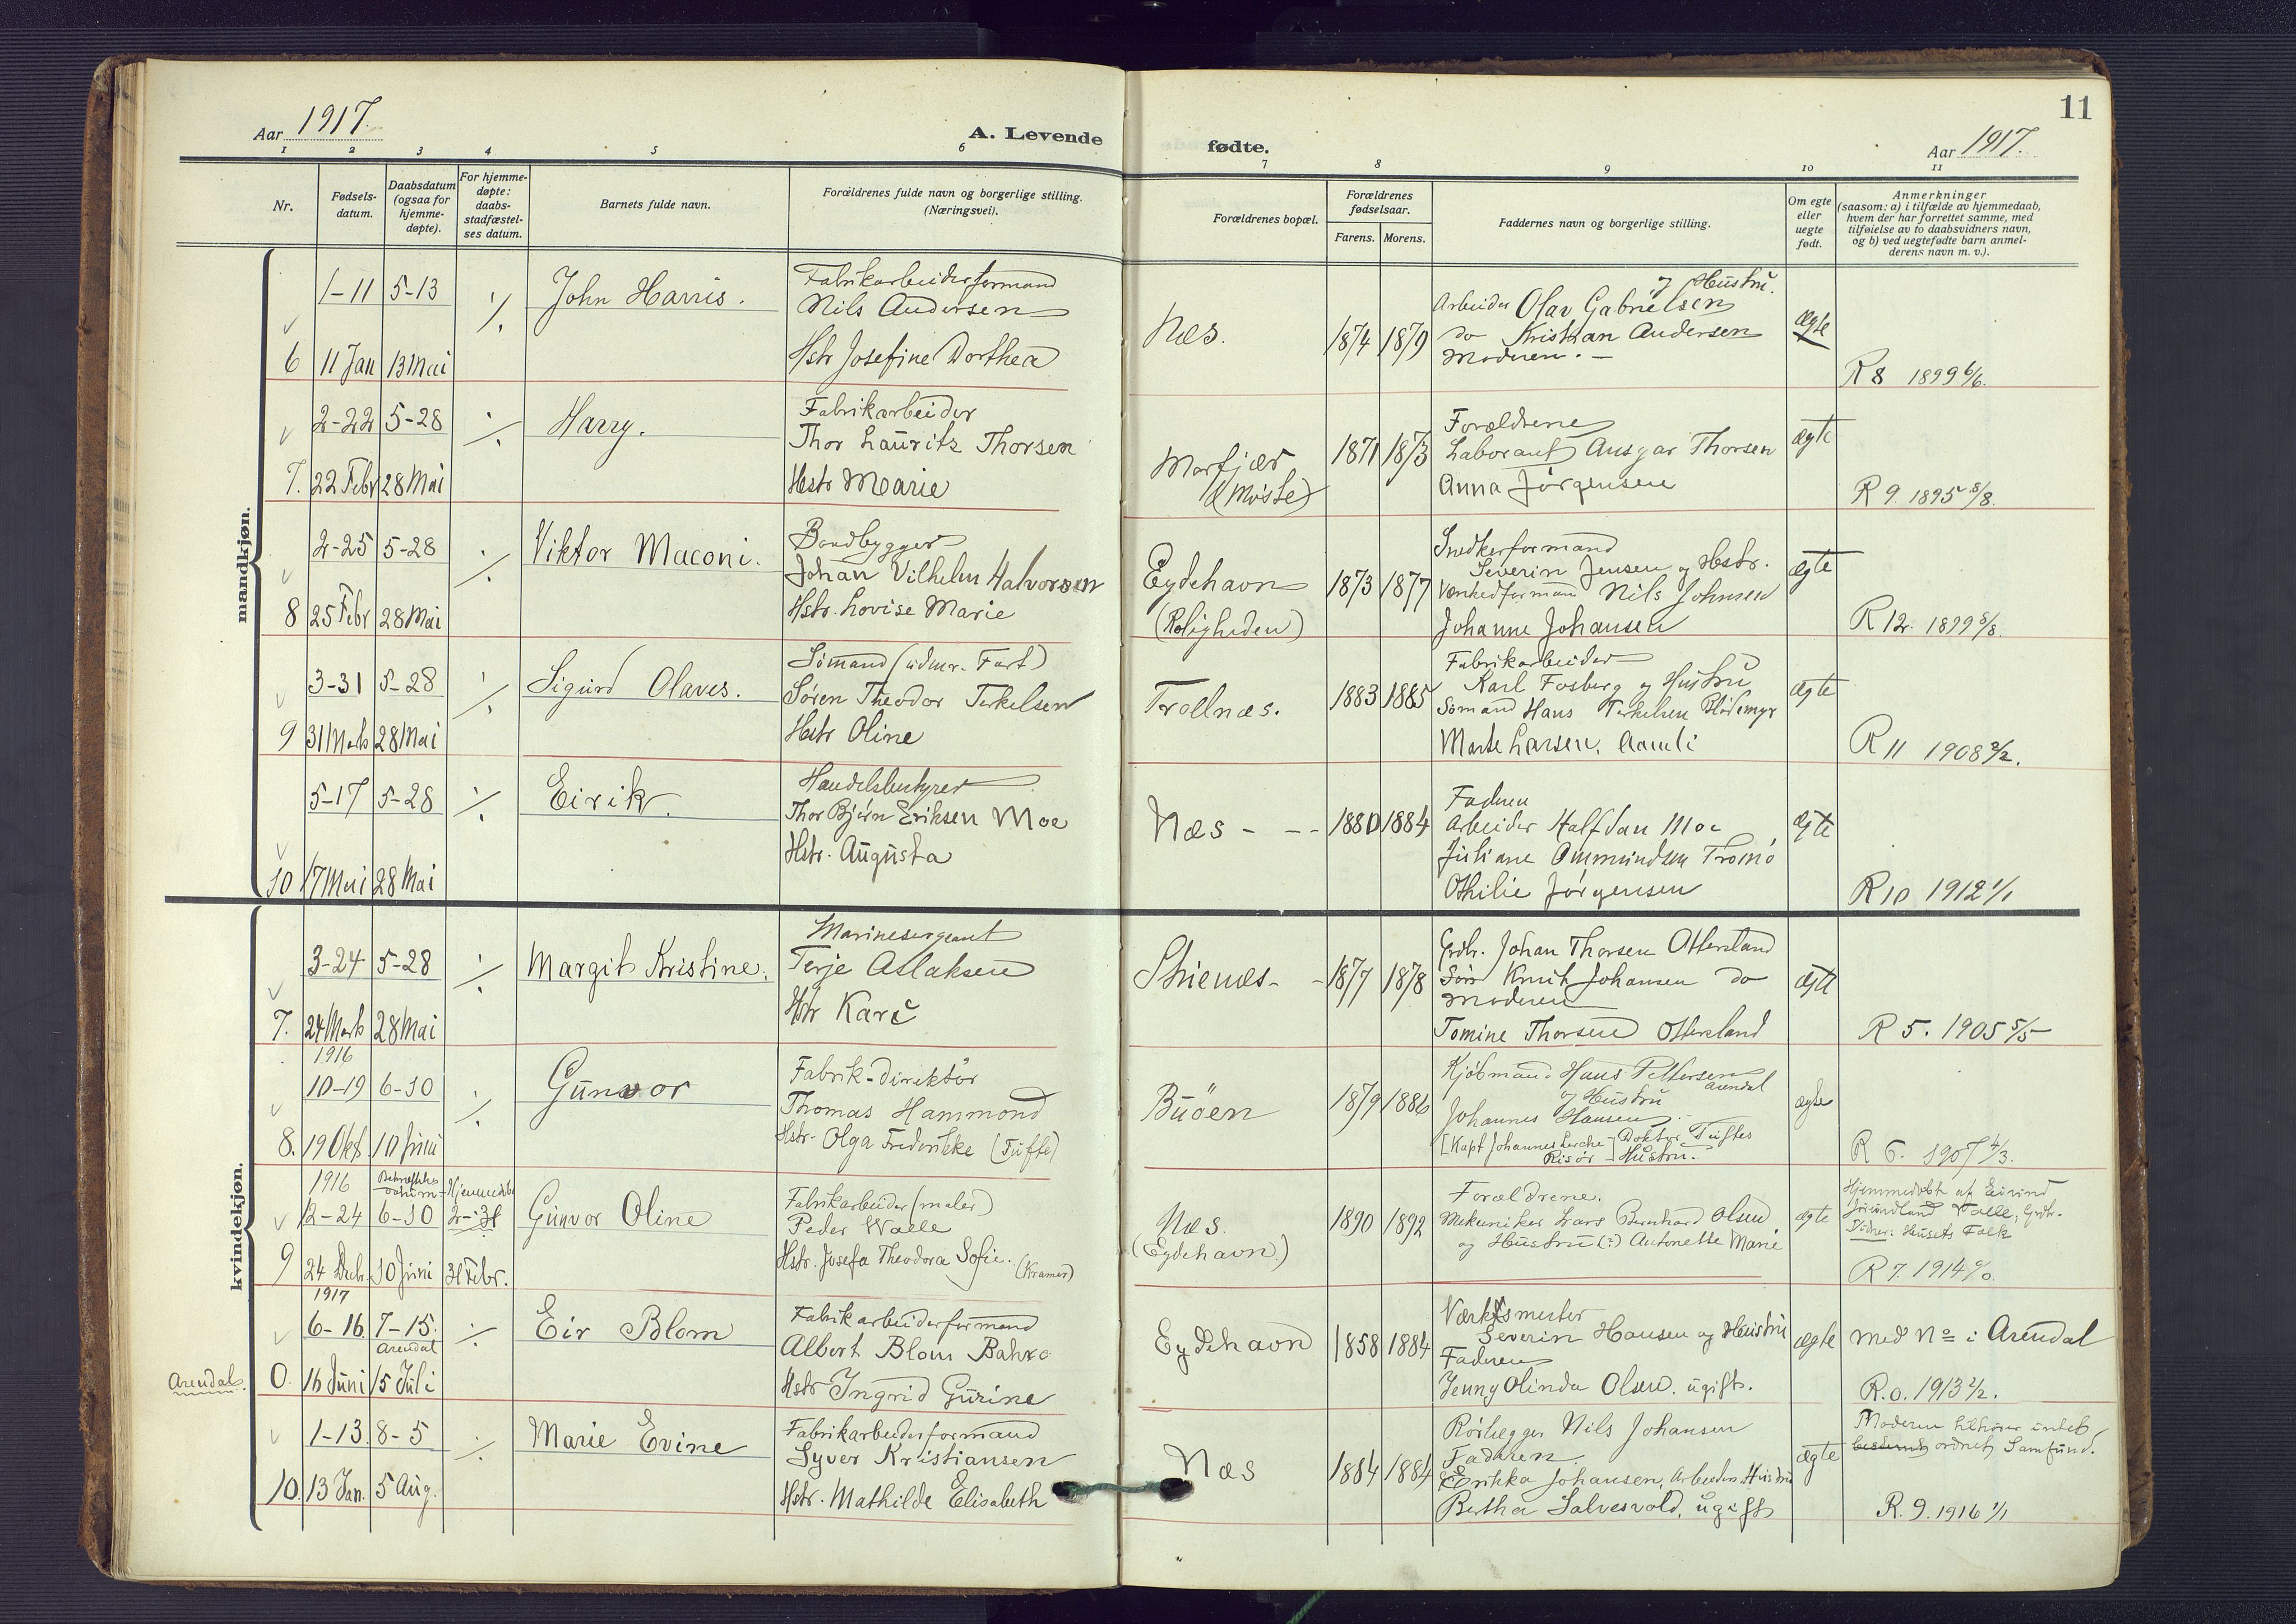 11
Aar 1917.
A. Levende
fødte.
Aar 1917.
1 2 3 4 5 6 7 8 9 10 11
Nr.
Fødsels-
datum.
Daabsdatum
(ogsaa for
hjemme-
døpte).
For hjemme-
døpte:
daabs-
stadfæstel-
ses datum.
Barnets fulde navn.
Forældrenes fulde navn og borgerlige stilling.
(Næringsvei).
Forældrenes bopæl.
Forældrenes
fødselsaar.
Farens. Morens.
Faddernes navn og borgerlige stilling.
Om egte
eller
uegte
født.
Anmerkninger
(saasom: a) i tilfælde av hjemmedaab,
hvem der har forrettet samme, med
tilføielse av to daabsvidners navn,
og b) ved uegtefødte barn anmel-
derens navn m. v.).
mandkjøn.
6
1-11 5-13
11 Jan 13 Mai
./.
John Harris.
Fabrikarbeiderformand
Nils Andersen
Hstr Josefine Dorthea
Næs.
1874 1879
og Hustru.
Arbeider Olav Gabrielsen
do Kristian Andersen
Moderen.
ægte
R 8 1899 6/6.
7.
2-22 5-28
22 Febr 28 Mai
./.
Harry.
Fabrikarbeider
Thor Lauritz Thorsen
Hstr Marie
Morfjær
(Møste)
1871 1873
Forældrene
Laborant Ansgar Thorsen
Anna Jørgensen
ægte
R 9. 1895 8/8.
8
2-25 5-28
25 Febr 28 Mai
./.
Viktor Maconi.
Baadbygger
Johan Vilhelm Halvorsen
Hstr. Lovise Marie
Eydehavn
(Roligheden)
1873 1877
Snedkerformand
Severin Jensen og Hstr.
Nils Johnsen
Johanne Johansen
ægte
R 12. 1899 8/8.
9
3-31 5-28
31 Marts 28 Mai
./.
Sigurd Olaves.
Sømand (udenr. Fart)
Søren Theodor Terkelsen
Hstr Oline
Trollnæs.
1883 1885
Fabrikarbeider
Karl Fosberg og Hustru
Sømand Hans Terkelsen Flødemyr
Marte Larsen, Aamli
ægte
R 11 1908 2/2.
10
5-17 5-28
17 Mai 28 Mai
./.
Eirik.
Handelsbestyrer
Thor Bjørn Eriksen Moe
Hstr. Augusta
Næs - - -
1880 1884
Faderen
Arbeider Halfdan Moe
Juliane Ommundsen Tromø
Othilie Jørgensen
ægte
R 10 1912 1/1
kvindekjøn.
7.
3-24 5-28
24 Marts 28 Mai
./.
Margit Kristine.
Marinesergeant
Terje Aslaksen
Hstr Kari
1877 1878
Grdbr. Johan Thorsen Ottersland
Knut Johansen do
Moderen
Tomine Thorsen Ottersland
ægte
R 5. 1905 5/5
8.
1916
10-19 6-10
19 Okt. 10 Juni
./.
Gunvor
Fabrik-direktør
Thomas Hammond
Hstr. Olga Frederikke (Tufte)
Buøen
1879 1886
Kjøbmand Hans Pettersen
Arendal
og Hustru
Johannes Hansen
[Kapt Johannes Lerche Doktor Tuftes
Risør Hustru.
ægte
R 6. 1907 4/3.
9
1916
12-24 6-10 2-31
24 Decbr. 10 Juni 31 Febr.
Gunvor Oline
Fabrikarbeider (maler)
Peder Walle
Hstr. Josefa Theodora Sofie. (Kramer)
Næs.
(Eydehavn)
1890 1892
Forældrene.
Mekaniker Lars Bernhard Olsen
og Hustru (?) Antonette Marie
ægte
Hjemmedøbt af Eivind
Jørundland Valle, Grdbr.
Vidner: Husets Folk
R 7. 1914 0/0.
Arendal.
0.
1917
6-16. 7-15.
Arendal
16 Juni 15 Juli
./.
Eir Blom
Fabrikarbeiderformand
Albert Blom Bakke
Hstr Ingrid Gurine
Eydehavn
1858 1884
Værksmester
Severin Hansen og Hustru
Faderen
Jenny Olinda Olsen. ugift.
ægte
med No i Arendal
R. 0. 1913 2/2.
10.
1-13. 8-5
13 Jan. 5 Aug.
./.
Marie Evine
Fabrikarbeiderformand
Syver Kristiansen
Hstr. Mathilde Elisabeth
Næs
1884 1884
Rørlegger Nils Johansen
Faderen.
Erikka Johansen, Arbeiders Hustru
Bertha Salvesvold, ugift
ægte
Moderen tilhører intet
ordnet Samfund.
R. 9. 1916 1/1